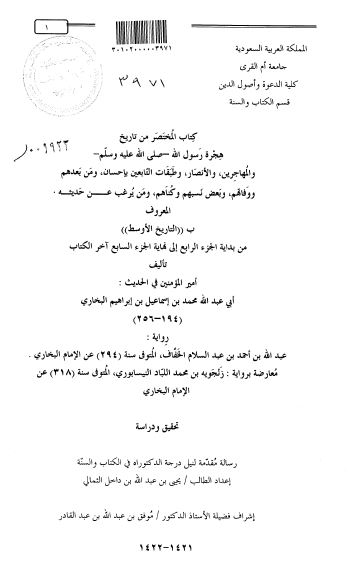 ١
٣٠١٠٢٠٠٠٠٠٣٩٧١
المملكة العربية السعودية
جامعة أم القرى
كلية الدعوة وأصول الدين
قسم الكتاب والسنة
٣٩٧١
كتاب المُختصَر من تاريخ
هِجْرة رَسول الله –صلى الله عليه وسلّم–
والمُهاجرين، والأنصَار، وطَبقَات التابعين بإحسان، ومَن بَعدهم
ووفَاتهم، وبَعض نَسبهم وكُناهم، ومَن يُرغب عن حَديثه .
المعروف
ب ((التاريخ الأوسط))
من بداية الجزء الرابع إلى نهاية الجزء السابع آخر الكتاب
تأليف
أمير المؤمنين في الحديث :
أبي عبد الله محمد بن إسماعيل بن إبراهيم البخاري
(١٩٤–٢٥٦)
رِواية :
عبد الله بن أحمد بن عبد السلام الخَفَّاف، المُتوفى سنة (٢٩٤) عن الإمام البخاري .
مُعارضة برواية : زَنجويه بن محمد اللبَّاد النيسابوري، المُتوفى سنة (٣١٨) عن
الإمام البخاري
تحقيق ودراسة
رسالة مُقدّمة لنيل درجة الدكتوراه في الكتاب والسنّة
إعداد الطالب / يحيى بن عبد الله بن داخل الثمالي
إشراف فضيلة الأستاذ الدكتور / مُوفق بن عبد الله بن عبد القادر
١٤٢١–١٤٢٢